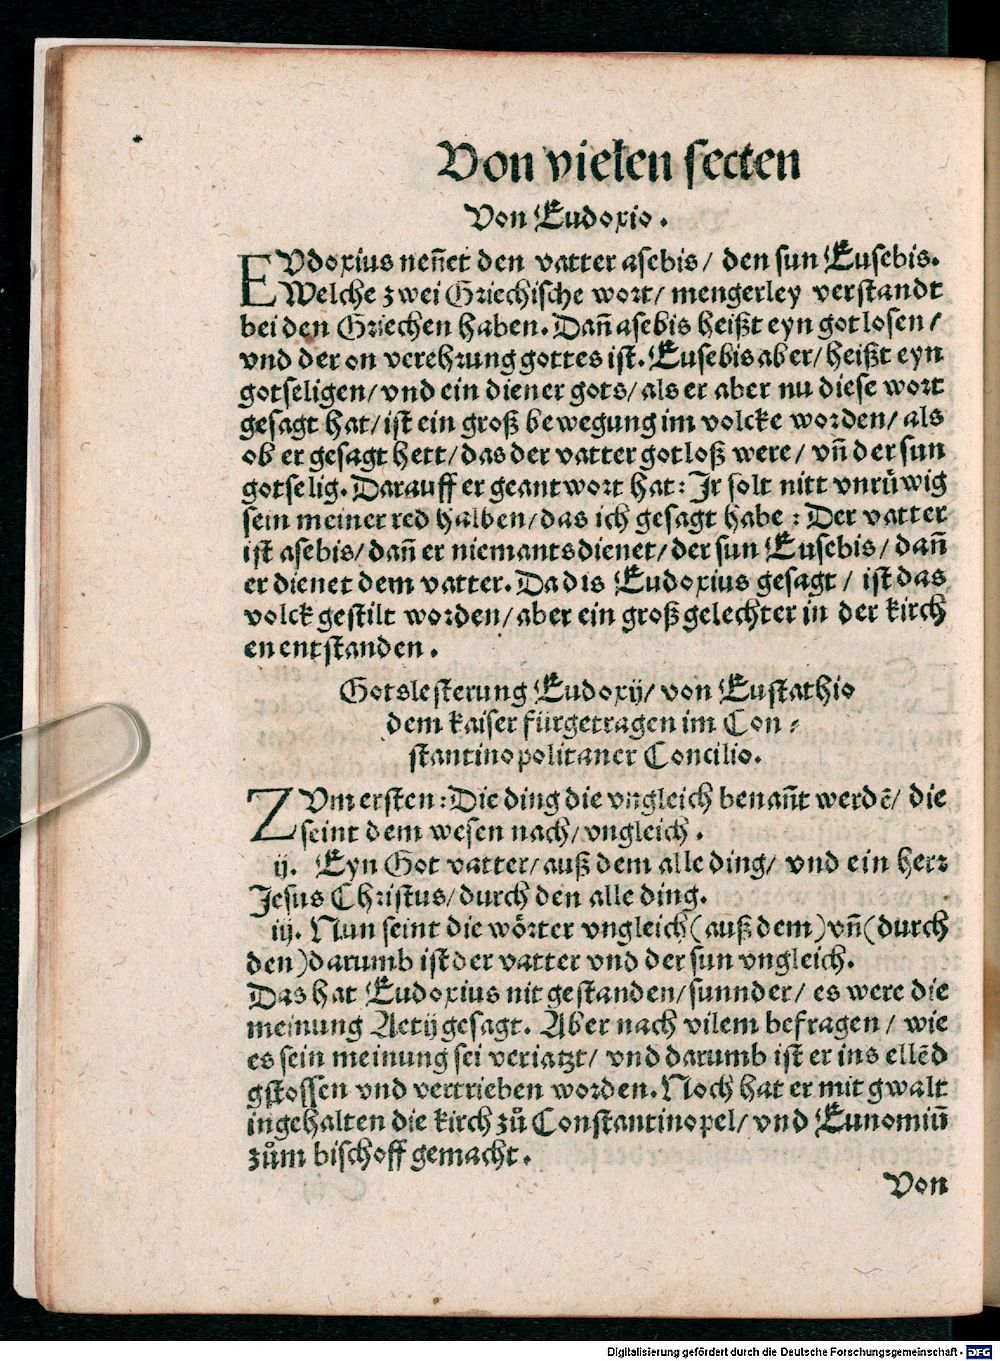 Von vielen secten
Von Eudoxio.
EVdoxius neñet den vatter asebis/ den sun Eusebis.
Welche zwei Griechische wort/ mengerley verstandt
bei den Griechen haben. Dañ asebis heißt eyn gotlosen/
vnd der on verehrung gottes ist. Eusebis aber/ heißt eyn
gotseligen/ vnd ein diener gots/ als er aber nu diese wort
gesagt hat/ ist ein groß bewegung im volcke worden/ als
ob er gesagt hett/ das der vatter gotloß were/ vñ der sun
gotselig. Darauff er geantwort hat: Jr solt nitt vnrüwig
sein meiner red halben/ das ich gesagt habe: Der vatter
ist asebis/ dañ er niemants dienet/ der sun Eusebis/ dañ
er dienet dem vatter. Da dis Eudoxius gesagt/ ist das
volck gestilt worden/ aber ein groß gelechter in der kirch
en entstanden.
Gotslesterung Eudoxij/ von Eustathio
dem kaiser fürgetragen im Con⸗
stantinopolitaner Concilio.
ZVm ersten: Die ding die vngleich benañt werdē/ die
seint dem wesen nach/ vngleich.
ij. Eyn Got vatter/ auß dem alle ding/ vnd ein herr
Jesus Christus/ durch den alle ding.
iij. Nun seint die wörter vngleich (auß dem) vñ (durch
den) darumb ist der vatter vnd der sun vngleich.
Das hat Eudoxius nit gestanden/ sunnder/ es were die
meinung Aetij gesagt. Aber nach vilem befragen/ wie
es sein meinung sei veriatzt/ vnd darumb ist er ins ellēd
gstossen vnd vertrieben worden. Noch hat er mit gwalt
ingehalten die kirch zů Constantinopel/ vnd Eunomiũ
zům bischoff gemacht.
Von
Digitalisierung gefördert durch die Deutsche Forschungsgemeinschaft - DFG